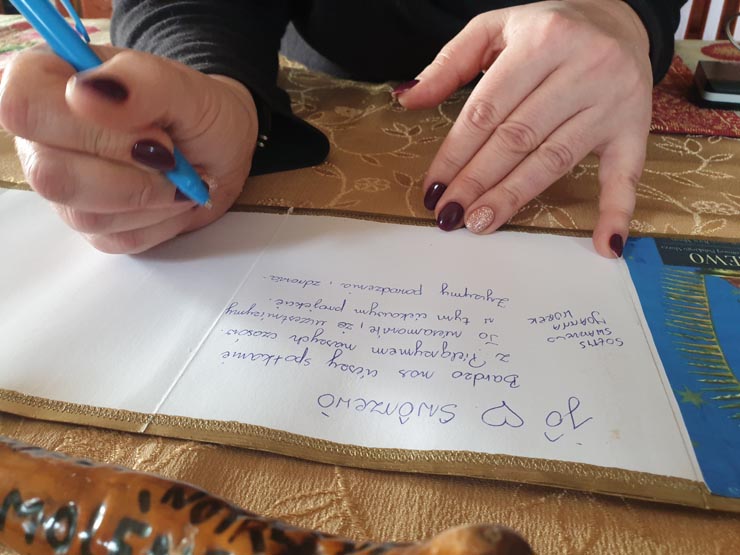 jô ♡ Swôrzewò
Bardzo nas cieszy spotkanie
z Pielgrzymem naszych czasów.
To niesamowite, że uczestniczymy
w tym ciekawym projekcie.
Życzymy powodzenia i zdrowia.
SOŁTYS
SWARZEWO
EWO